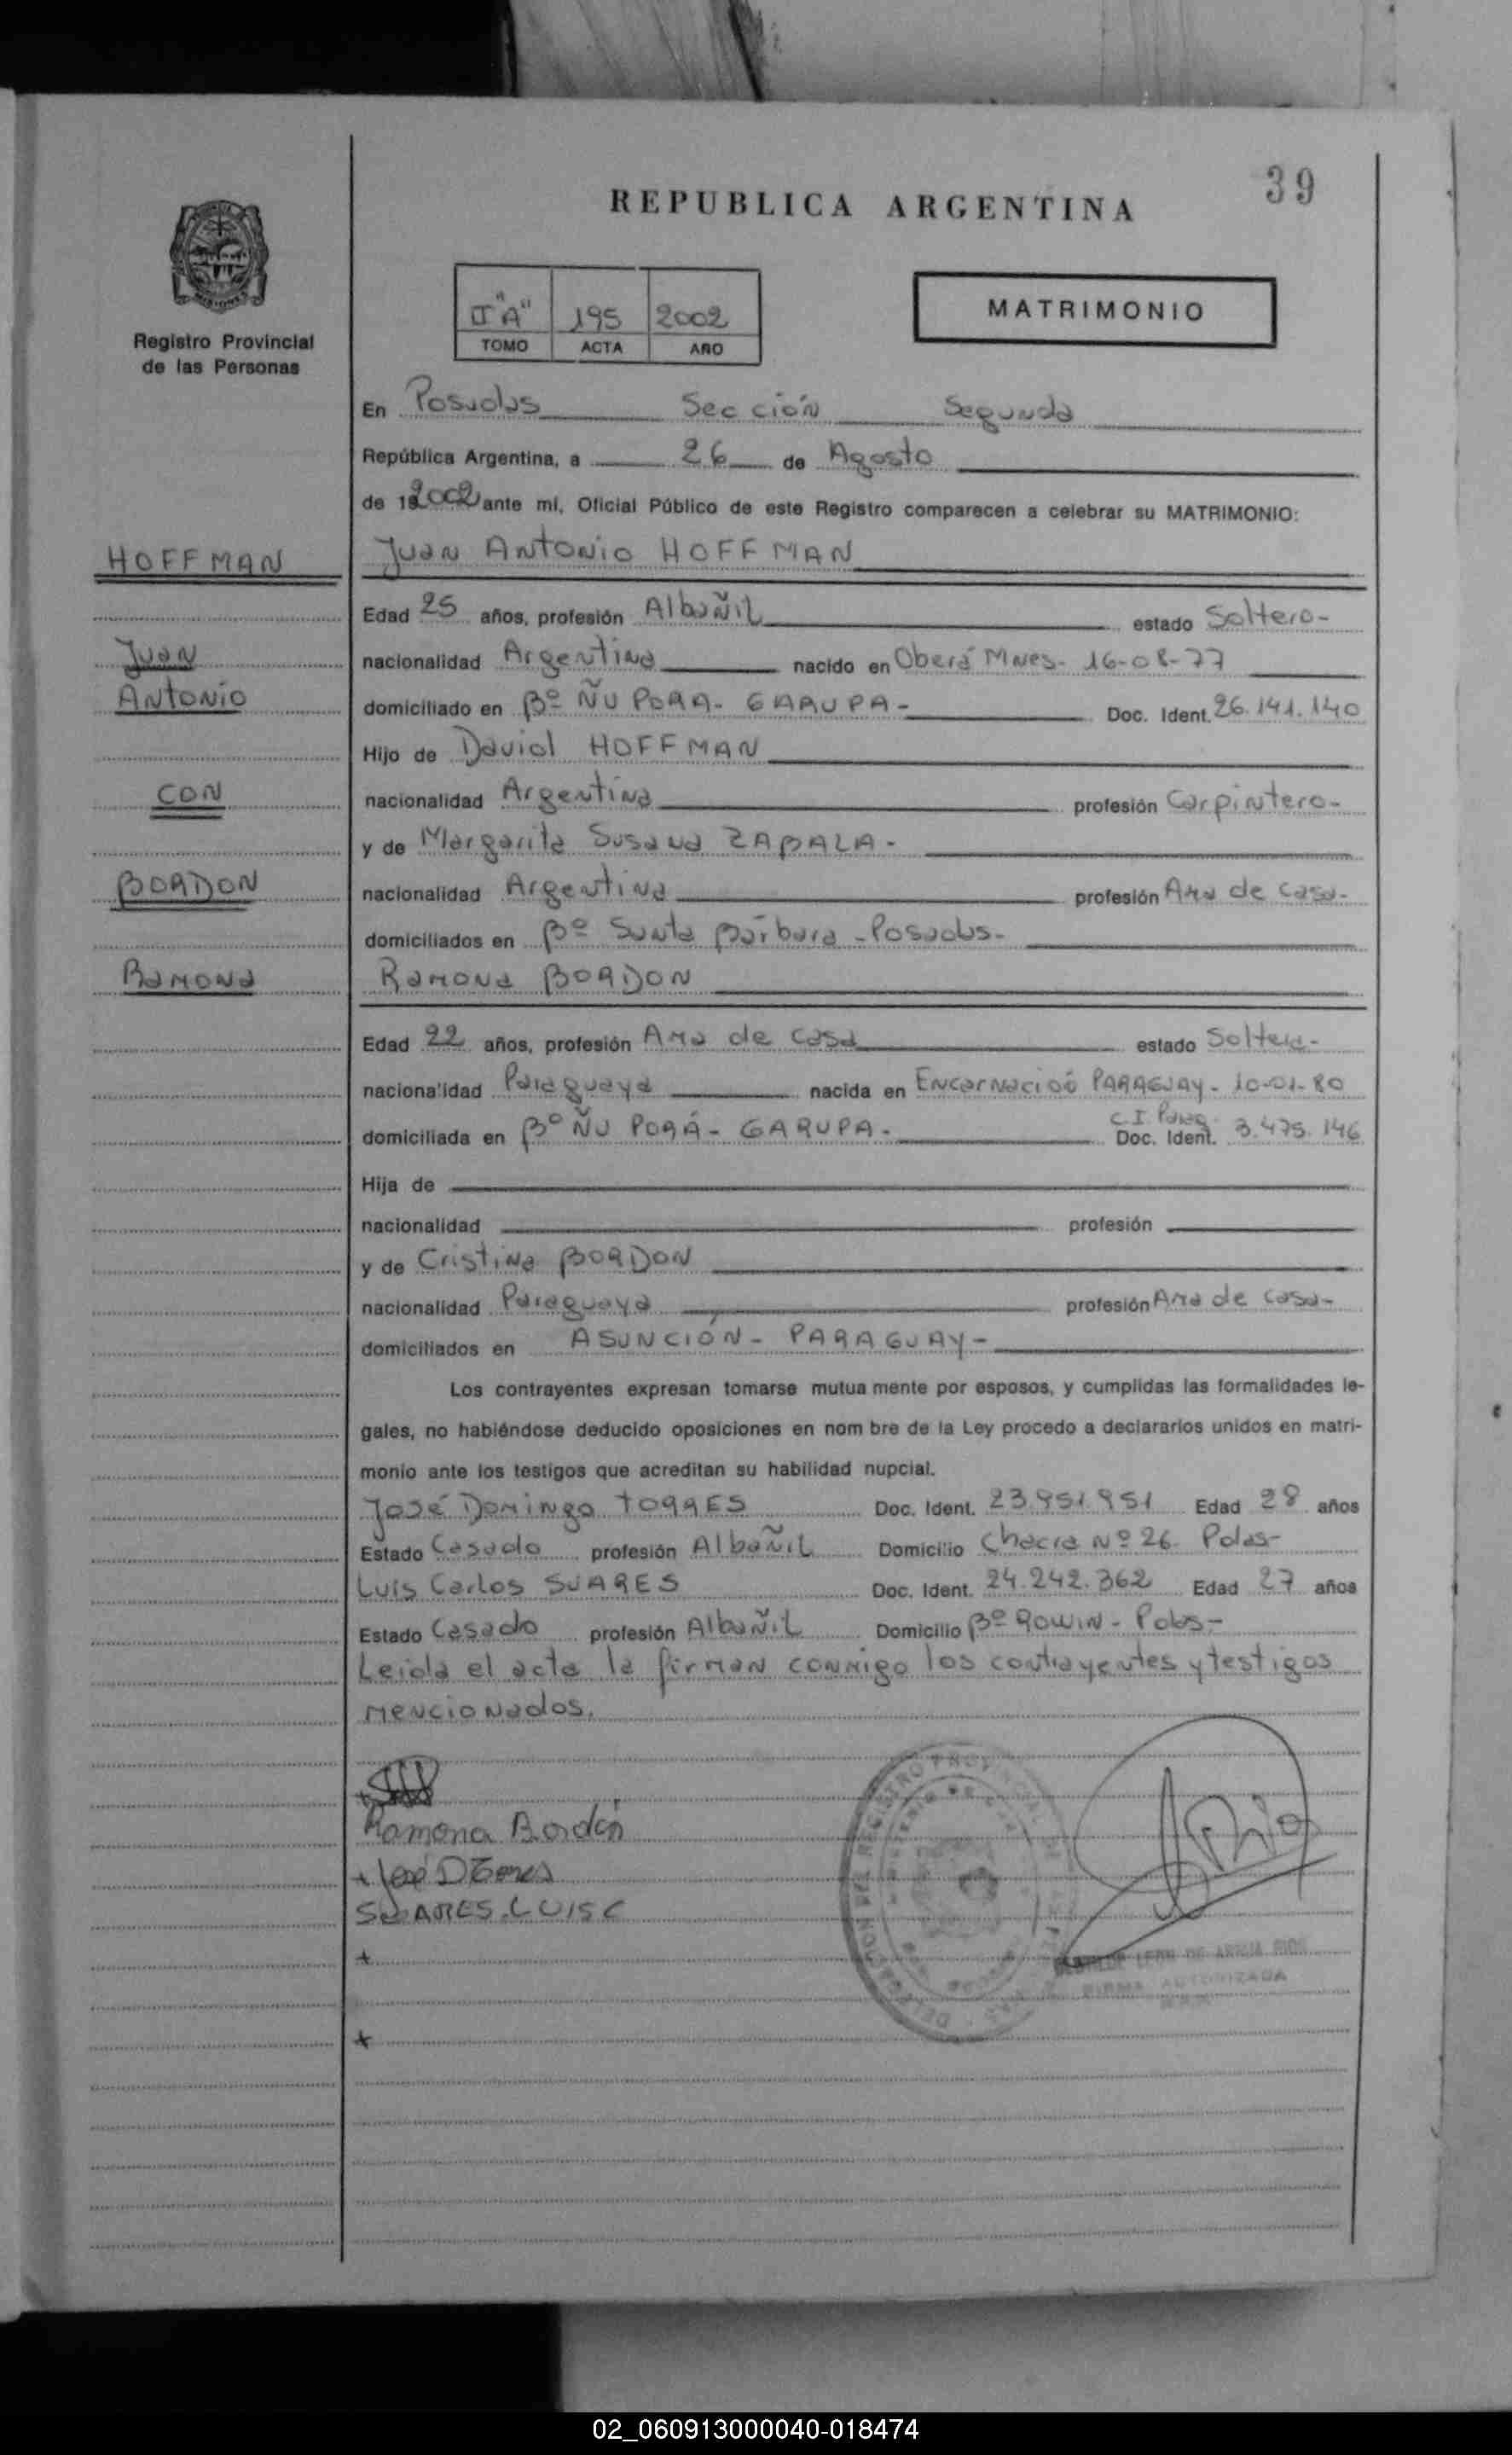 39
REPUBLICA ARGENTINA
Registro Provincial
de las Personas
II "A" 195 2002
TOMO ACTA AÑO
MATRIMONIO
En Posadas Sección Segunda
República Argentina, a 26 de Agosto
de 2002 ante mi, Oficial Público de este Registro comparecen a celebrar su MATRIMONIO:
HOFFMAN
Juan
Antonio
CON
BORDON
Ramona
Juan Antonio HOFFMAN
Edad 25 años, profesión Albañil estado Soltero-
nacionalidad Argentina nacido en Oberá Mnes- 16-08-77
domiciliado en Bº ÑU PORA- GARUPA- Doc. Ident. 26.141.140
Hijo de David HOFFMAN
nacionalidad Argentina profesión Carpintero-
y de Margarita Susana ZABALA-
nacionalidad Argentina profesión Ama de casa-
domiciliados en Bº Santa Bárbara - Posadas-
Ramona BORDON
Edad 22 años, profesión Ama de casa estado Soltera-
nacionalidad Paraguaya nacida en Encarnación PARAGUAY- 10-01-80
domiciliada en Bº ÑU PORÁ- GARUPA- C.I. Parag. Doc. Ident. 3.475.146
Hija de
nacionalidad profesión
y de Cristina BORDON
nacionalidad Paraguaya profesión Ama de casa-
domiciliados en ASUNCIÓN- PARAGUAY-
Los contrayentes expresan tomarse mutua mente por esposos, y cumplidas las formalidades le-
gales, no habiéndose deducido oposiciones en nom bre de la Ley procedo a declararlos unidos en matri-
monio ante los testigos que acreditan su habilidad nupcial.
José Domingo TORRES Doc. Ident. 23.951.951 Edad 28 años
Estado Casado profesión Albañil Domicilio Chacra Nº 26. Pdas-
Luis Carlos SUARES Doc. Ident. 24.242.362 Edad 27 años
Estado Casado profesión Albañil Domicilio Bº ROWIN- Pdas-
Leida el acta la firman conmigo los contrayentes y testigos
mencionados.
Ramona Bordón
José D Torres
SUARES LUIS C
FIRMA AUTORIZADA
02_060913000040-018474